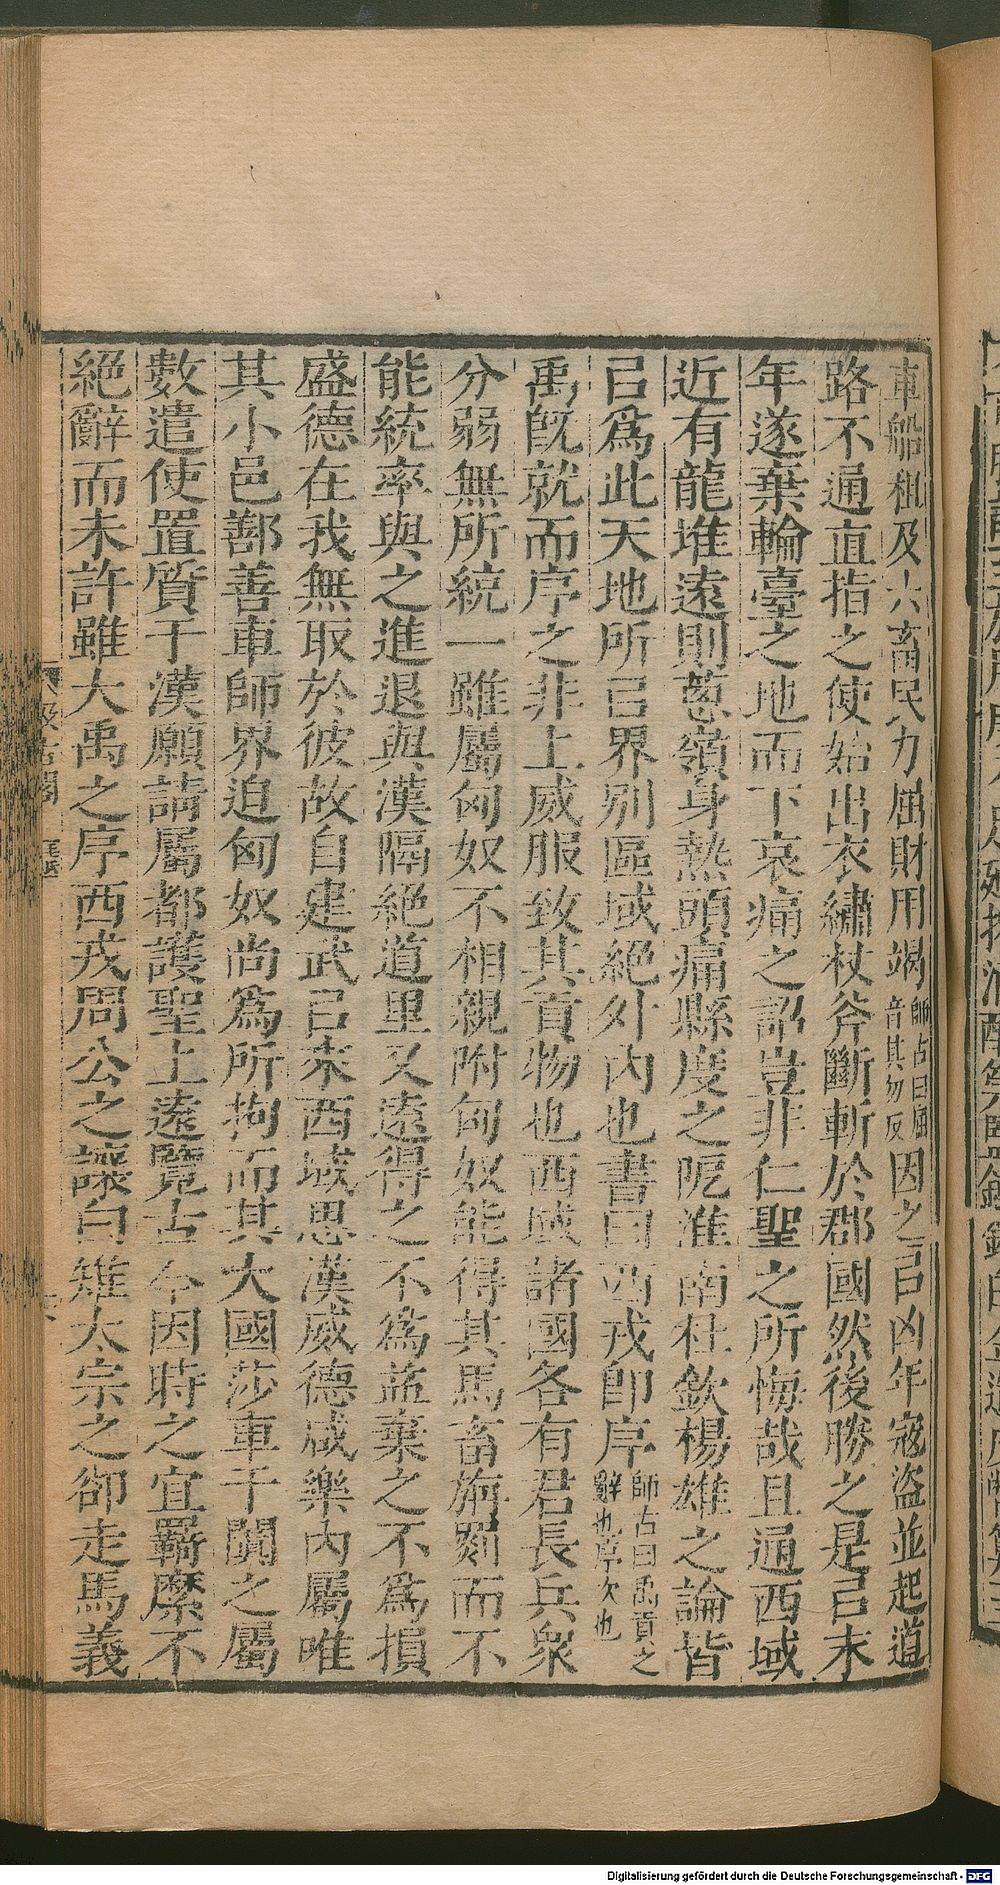 車船租及六畜民力屈財用竭師古曰屈音其勿反因之㠯凶年寇盜並起道
路不通直指之使始出衣繡杖斧斷斬於郡國然後勝之是㠯末
年遂棄輪臺之地而下哀痛之詔豈非仁聖之所悔哉且通西域
近有龍堆遠則蔥嶺身熱頭痛縣度之阸淮南杜欽楊雄之論皆
㠯爲此天地所㠯界別區域絕外內也書曰西戎卽序師古曰禹貢之辭也序次也
禹旣就而序之非上威服致其貢物也西域諸國各有君長兵衆
分弱無所統一雖屬匈奴不相親附匈奴能得其馬畜旃罽而不
能統率與之進退與漢隔絕道里又遠得之不爲益棄之不爲損
盛德在我無取於彼故自建武㠯來西域思漢威德咸樂內屬唯
其小邑鄯善車師界迫匈奴尚爲所拘而其大國莎車于闐之屬
數遣使置質于漢願請屬都護聖上遠覽古今因時之宜羈縻不
絕辭而未許雖大禹之序西戎周公之讓白雉太宗之卻走馬義
Digitalisierung gefördert durch die Deutsche Forschungsgemeinschaft - DFG